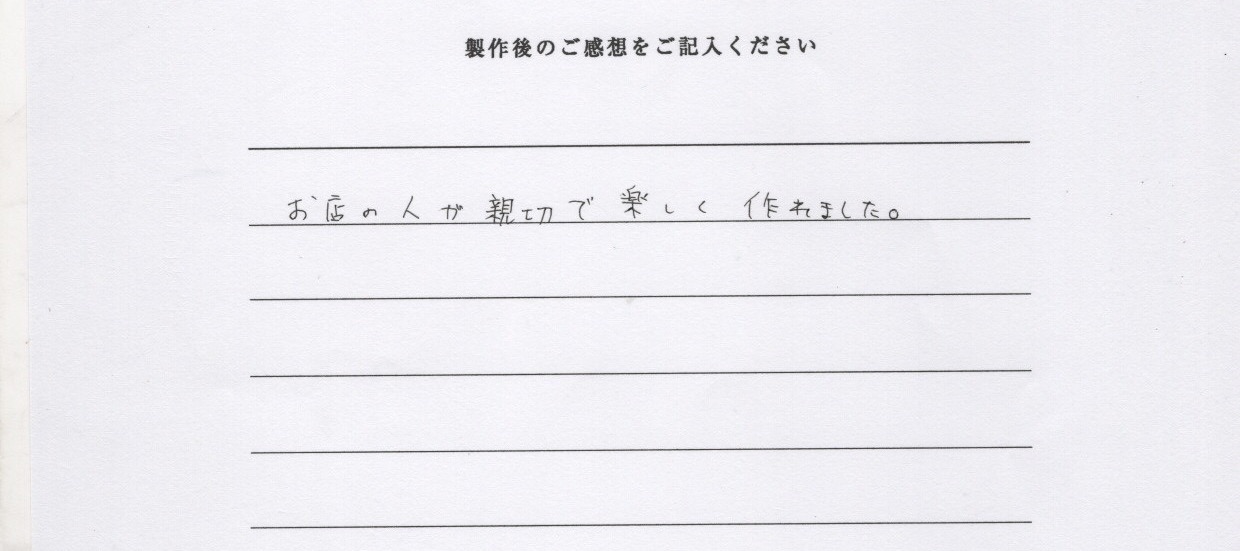 製作後のご感想をご記入ください
お店の人が親切で楽しく作れました。